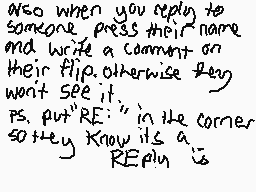 also when you reply to
someone, press their name
and write a comment on
their flip. otherwise they
won't see it.
PS. put "RE:" in the corner
so they know its a
REply is